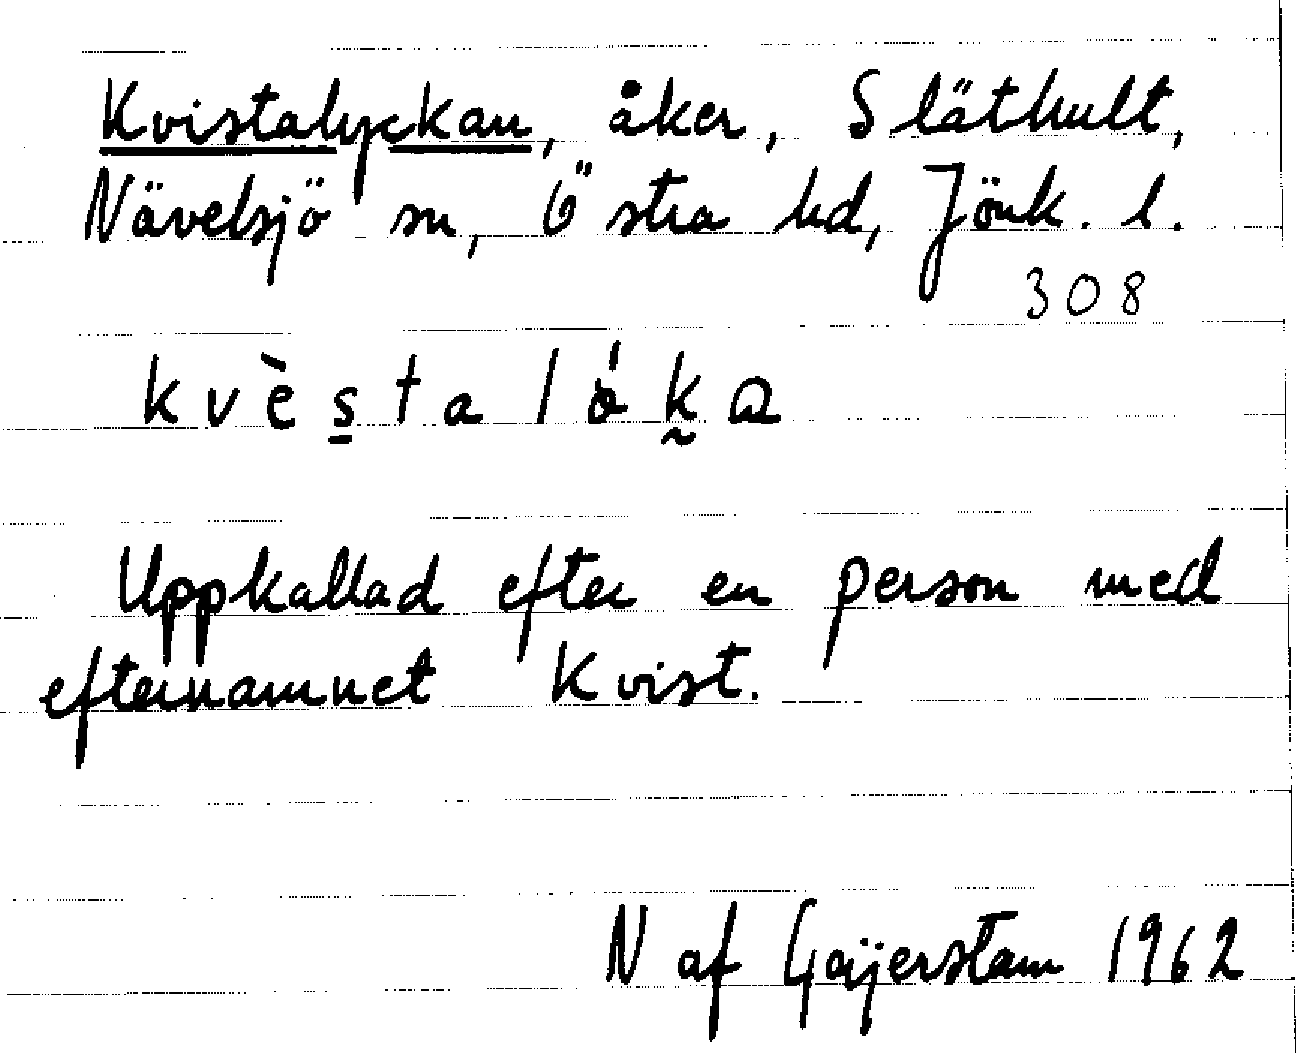 Kvistalyckan, åker, Släthult,
Nävelsjö sn, Östra hd, Jönk. l.
308
kvèstalókɑ
Uppkallad efter en person med
efternamnet Kvist.
N af Geijerstam 1962